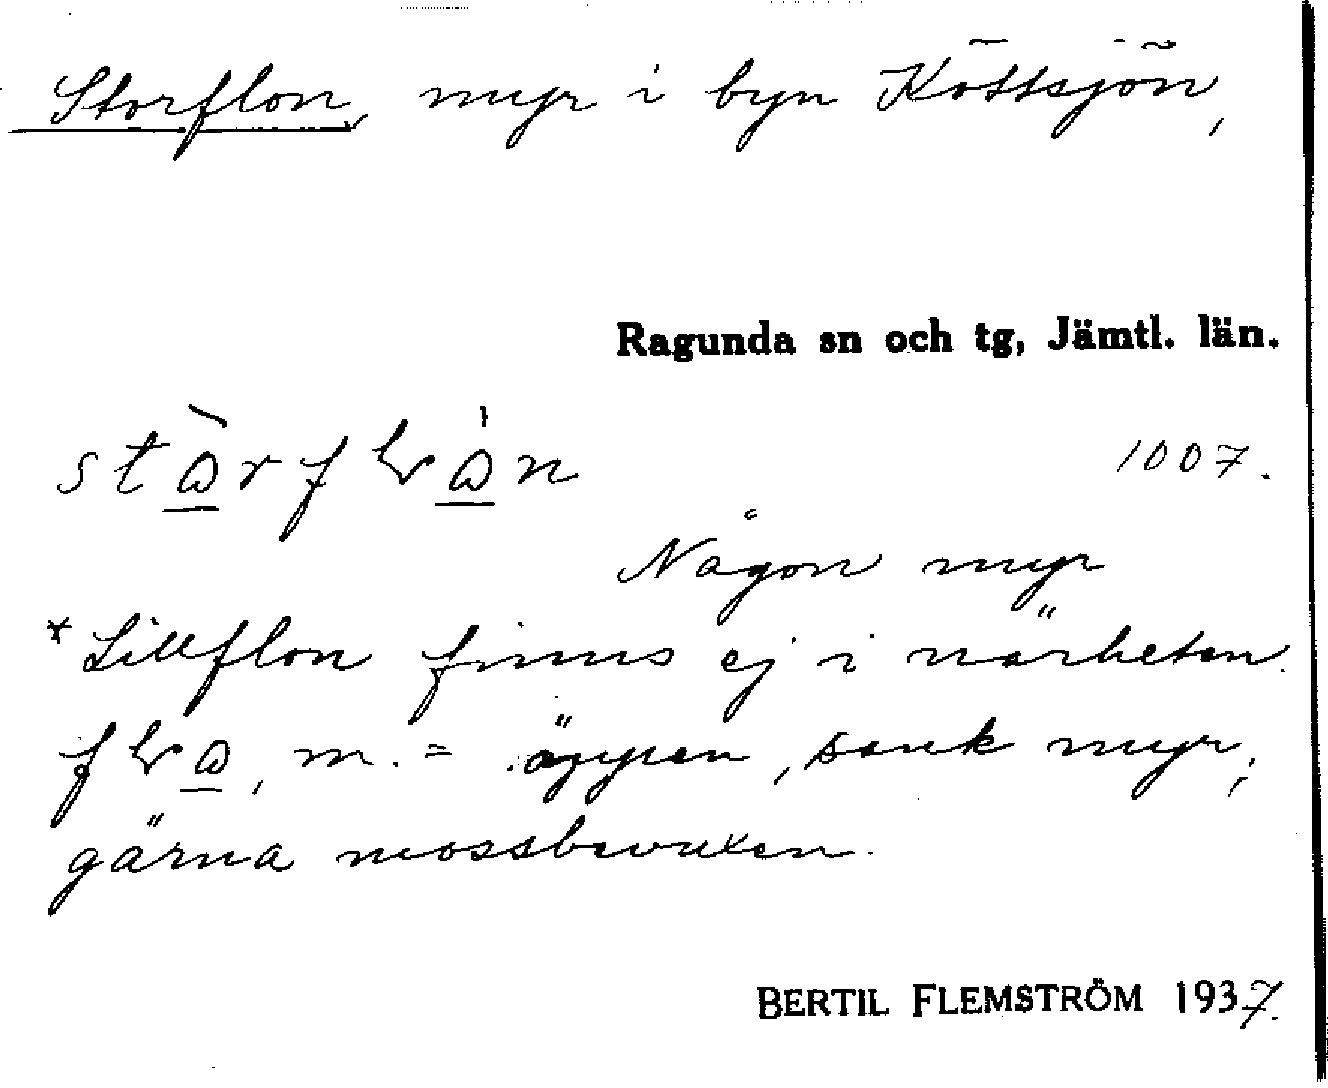 Storflon, myr i byn Köttsjön,
Ragunda sn och tg, Jämtl. län.
1007.
Någon myr
* Lillflon finns ej i närheten.
m. = öppen, sank myr,;
gärna mossbevuxen.
BERTIL FLEMSTRÖM 1937.